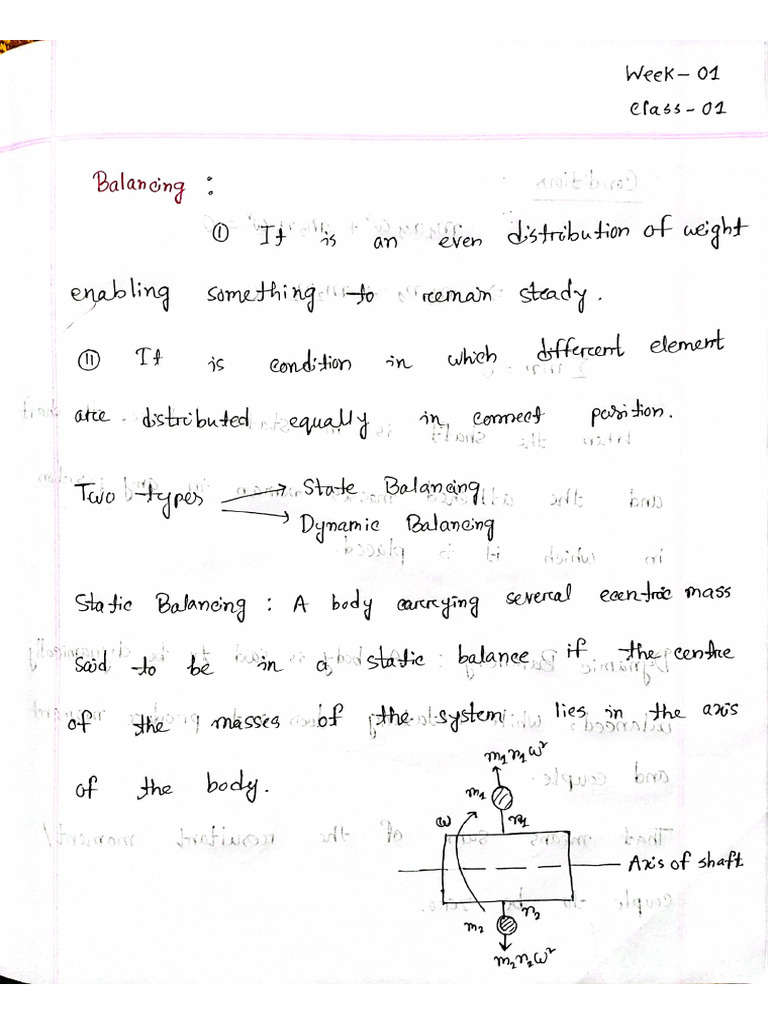 Week - 01
Class - 01
Balancing :
① It is an even distribution of weight
enabling something to remain steady.
② It is condition in which different element
are distributed equally in correct position.
Two types → State Balancing
→ Dynamic Balancing
Static Balancing : A body carrying several ecentric mass
said to be in a static balance if the centre
of the masses of the system lies in the axis
of the body.
m₁r₁ω²
m₁
ω r₁
Axis of shaft
m₂ r₂
m₂r₂ω²